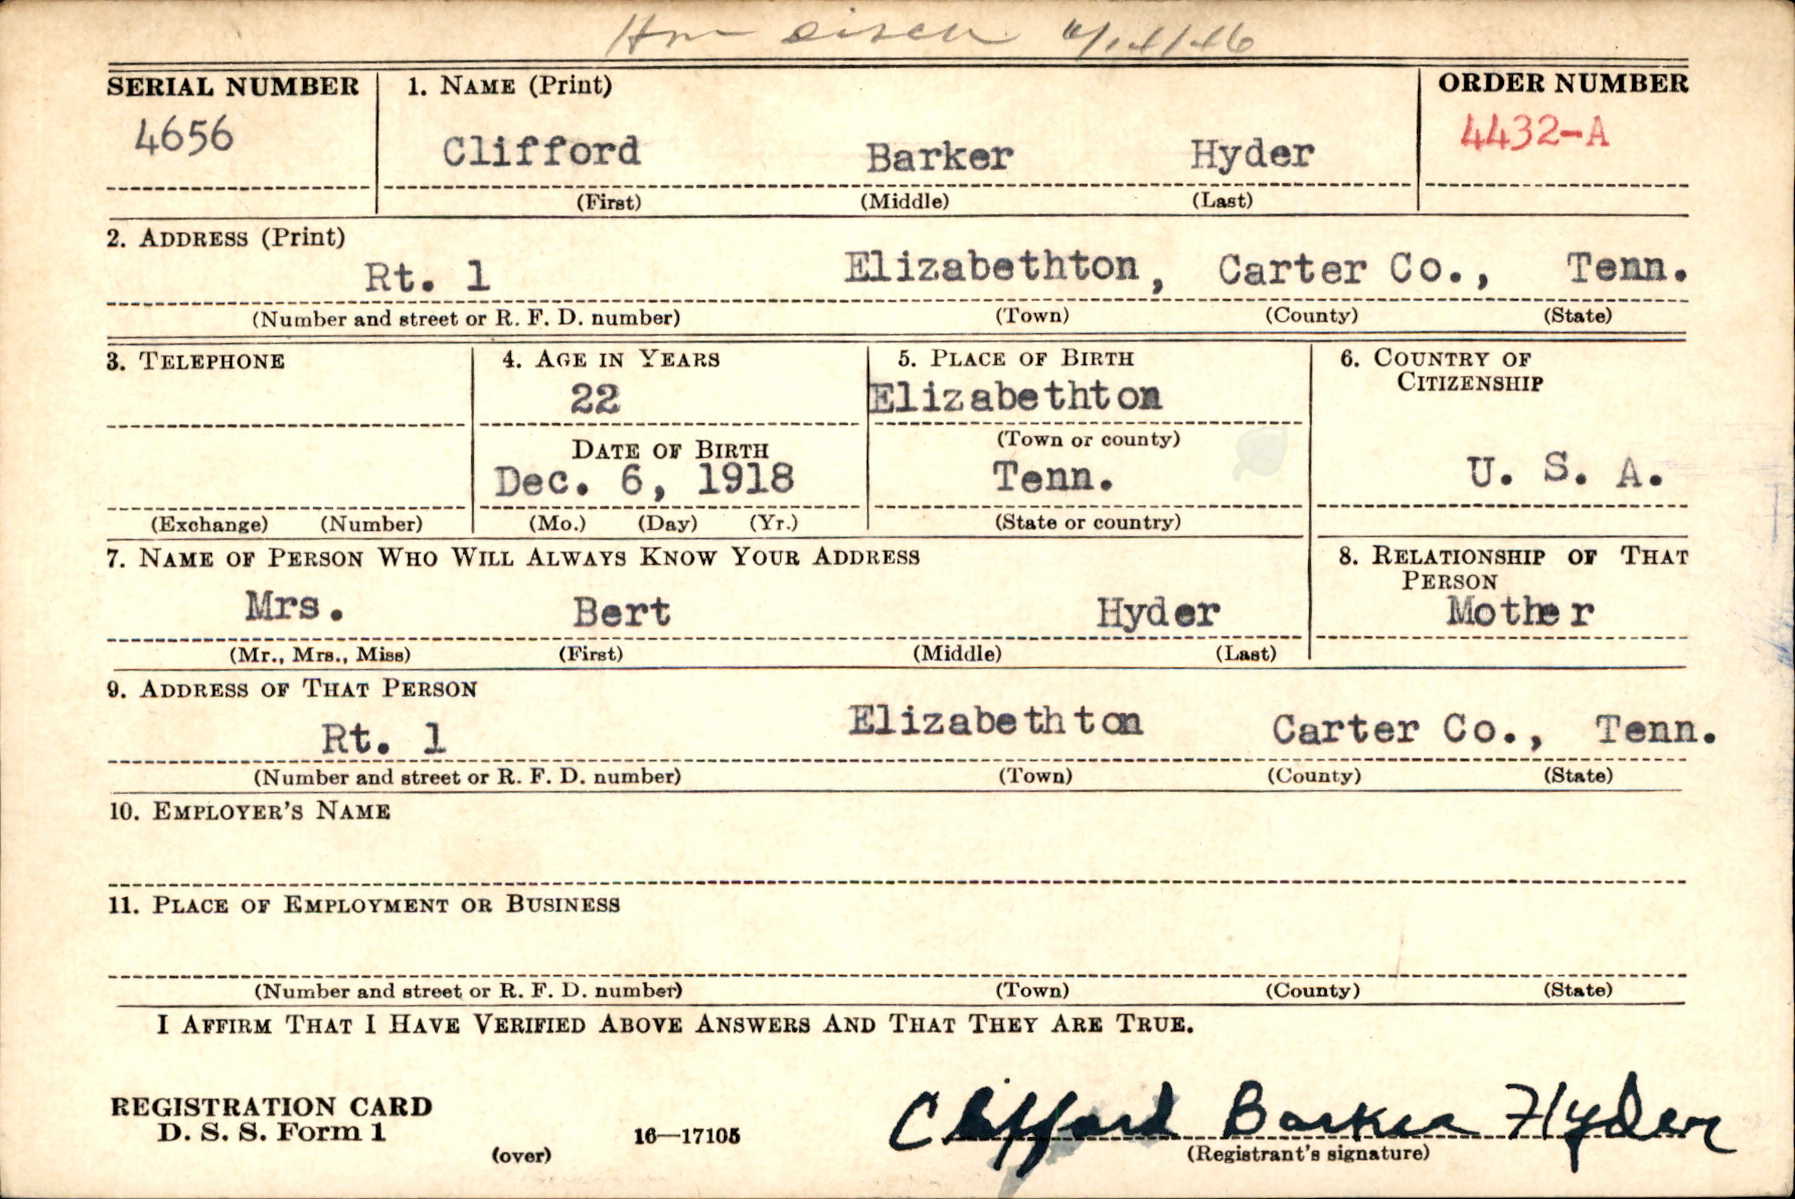 Hon disch
SERIAL NUMBER 1. NAME (Print) ORDER NUMBER
4656 Clifford Barker Hyder 4432-A
(First) (Middle) (Last)
2. ADDRESS (Print)
Rt. 1 Elizabethton, Carter Co., Tenn.
(Number and street or R. F. D. number) (Town) (County) (State)
3. TELEPHONE 4. AGE IN YEARS 5. PLACE OF BIRTH 6. COUNTRY OF
CITIZENSHIP
22 Elizabethton
(Town or county)
DATE OF BIRTH
Dec. 6, 1918 Tenn. U. S. A.
(Exchange) (Number) (Mo.) (Day) (Yr.) (State or country)
7. NAME OF PERSON WHO WILL ALWAYS KNOW YOUR ADDRESS 8. RELATIONSHIP OF THAT
PERSON
Mrs. Bert Hyder Mother
(Mr., Mrs., Miss) (First) (Middle) (Last)
9. ADDRESS OF THAT PERSON
Rt. 1 Elizabethton Carter Co., Tenn.
(Number and street or R. F. D. number) (Town) (County) (State)
10. EMPLOYER'S NAME
11. PLACE OF EMPLOYMENT OR BUSINESS
(Number and street or R. F. D. number) (Town) (County) (State)
I AFFIRM THAT I HAVE VERIFIED ABOVE ANSWERS AND THAT THEY ARE TRUE.
REGISTRATION CARD
D. S. S. Form 1
(over) 16—17105
Clifford Barker Hyder
(Registrant's signature)